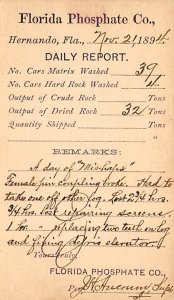 Florida Phosphate Co.,
Hernando, Fla., Nov. 21, 1894.
DAILY REPORT.
No. Cars Matrix Washed 39
No. Cars Hard Rock Washed 4
Output of Crude Rock Tons
Output of Dried Rock 32 Tons
Quantity Shipped Tons
REMARKS:
A day of "Mishaps"
Female pin coupling broke. Had to
take one off other log. Lost 2¾ hrs.
¾ hrs. lost repairing screens.
1 hr. " replacing two teeth on log
and fixing debris elevator.
Yours truly,
FLORIDA PHOSPHATE CO.
Per Supt